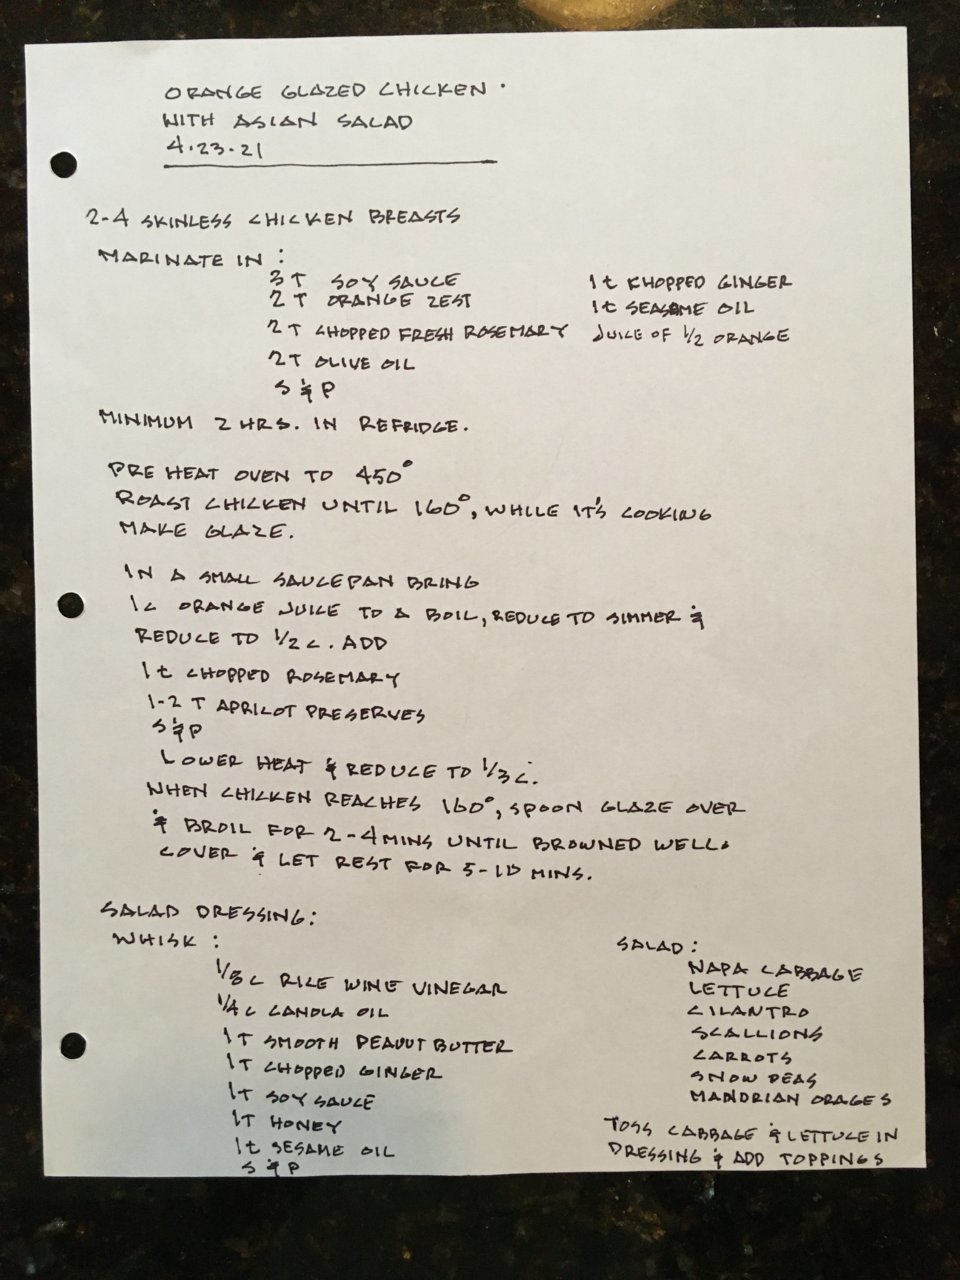 ORANGE GLAZED CHICKEN
WITH ASIAN SALAD
4.23.21
2-4 SKINLESS CHICKEN BREASTS
MARINATE IN :
3 T SOY SAUCE
2 T ORANGE ZEST
2 T CHOPPED FRESH ROSEMARY
2 T OLIVE OIL
S & P
1 t CHOPPED GINGER
1t SEASAME OIL
JUICE OF 1/2 ORANGE
MINIMUM 2 HRS. IN REFRIDGE.
PRE HEAT OVEN TO 450°
ROAST CHICKEN UNTIL 160°, WHILE IT'S COOKING
MAKE GLAZE.
IN A SMALL SAUCEPAN BRING
1C ORANGE JUICE TO A BOIL, REDUCE TO SIMMER &
REDUCE TO 1/2 C. ADD
1 t CHOPPED ROSEMARY
1-2 T APRICOT PRESERVES
S & P
LOWER HEAT & REDUCE TO 1/3 C.
WHEN CHICKEN REACHES 160°, SPOON GLAZE OVER
& BROIL FOR 2-4 MINS UNTIL BROWNED WELL.
COVER & LET REST FOR 5-10 MINS.
SALAD DRESSING:
WHISK :
1/3 C RICE WINE VINEGAR
1/4 C CANOLA OIL
1 T SMOOTH PEANUT BUTTER
1 T CHOPPED GINGER
1 T SOY SAUCE
1T HONEY
1t SESAME OIL
S & P
SALAD:
NAPA CABBAGE
LETTUCE
CILANTRO
SCALLIONS
CARROTS
SNOW PEAS
MANDRIAN ORAGES
TOSS CABBAGE & LETTUCE IN
DRESSING & ADD TOPPINGS